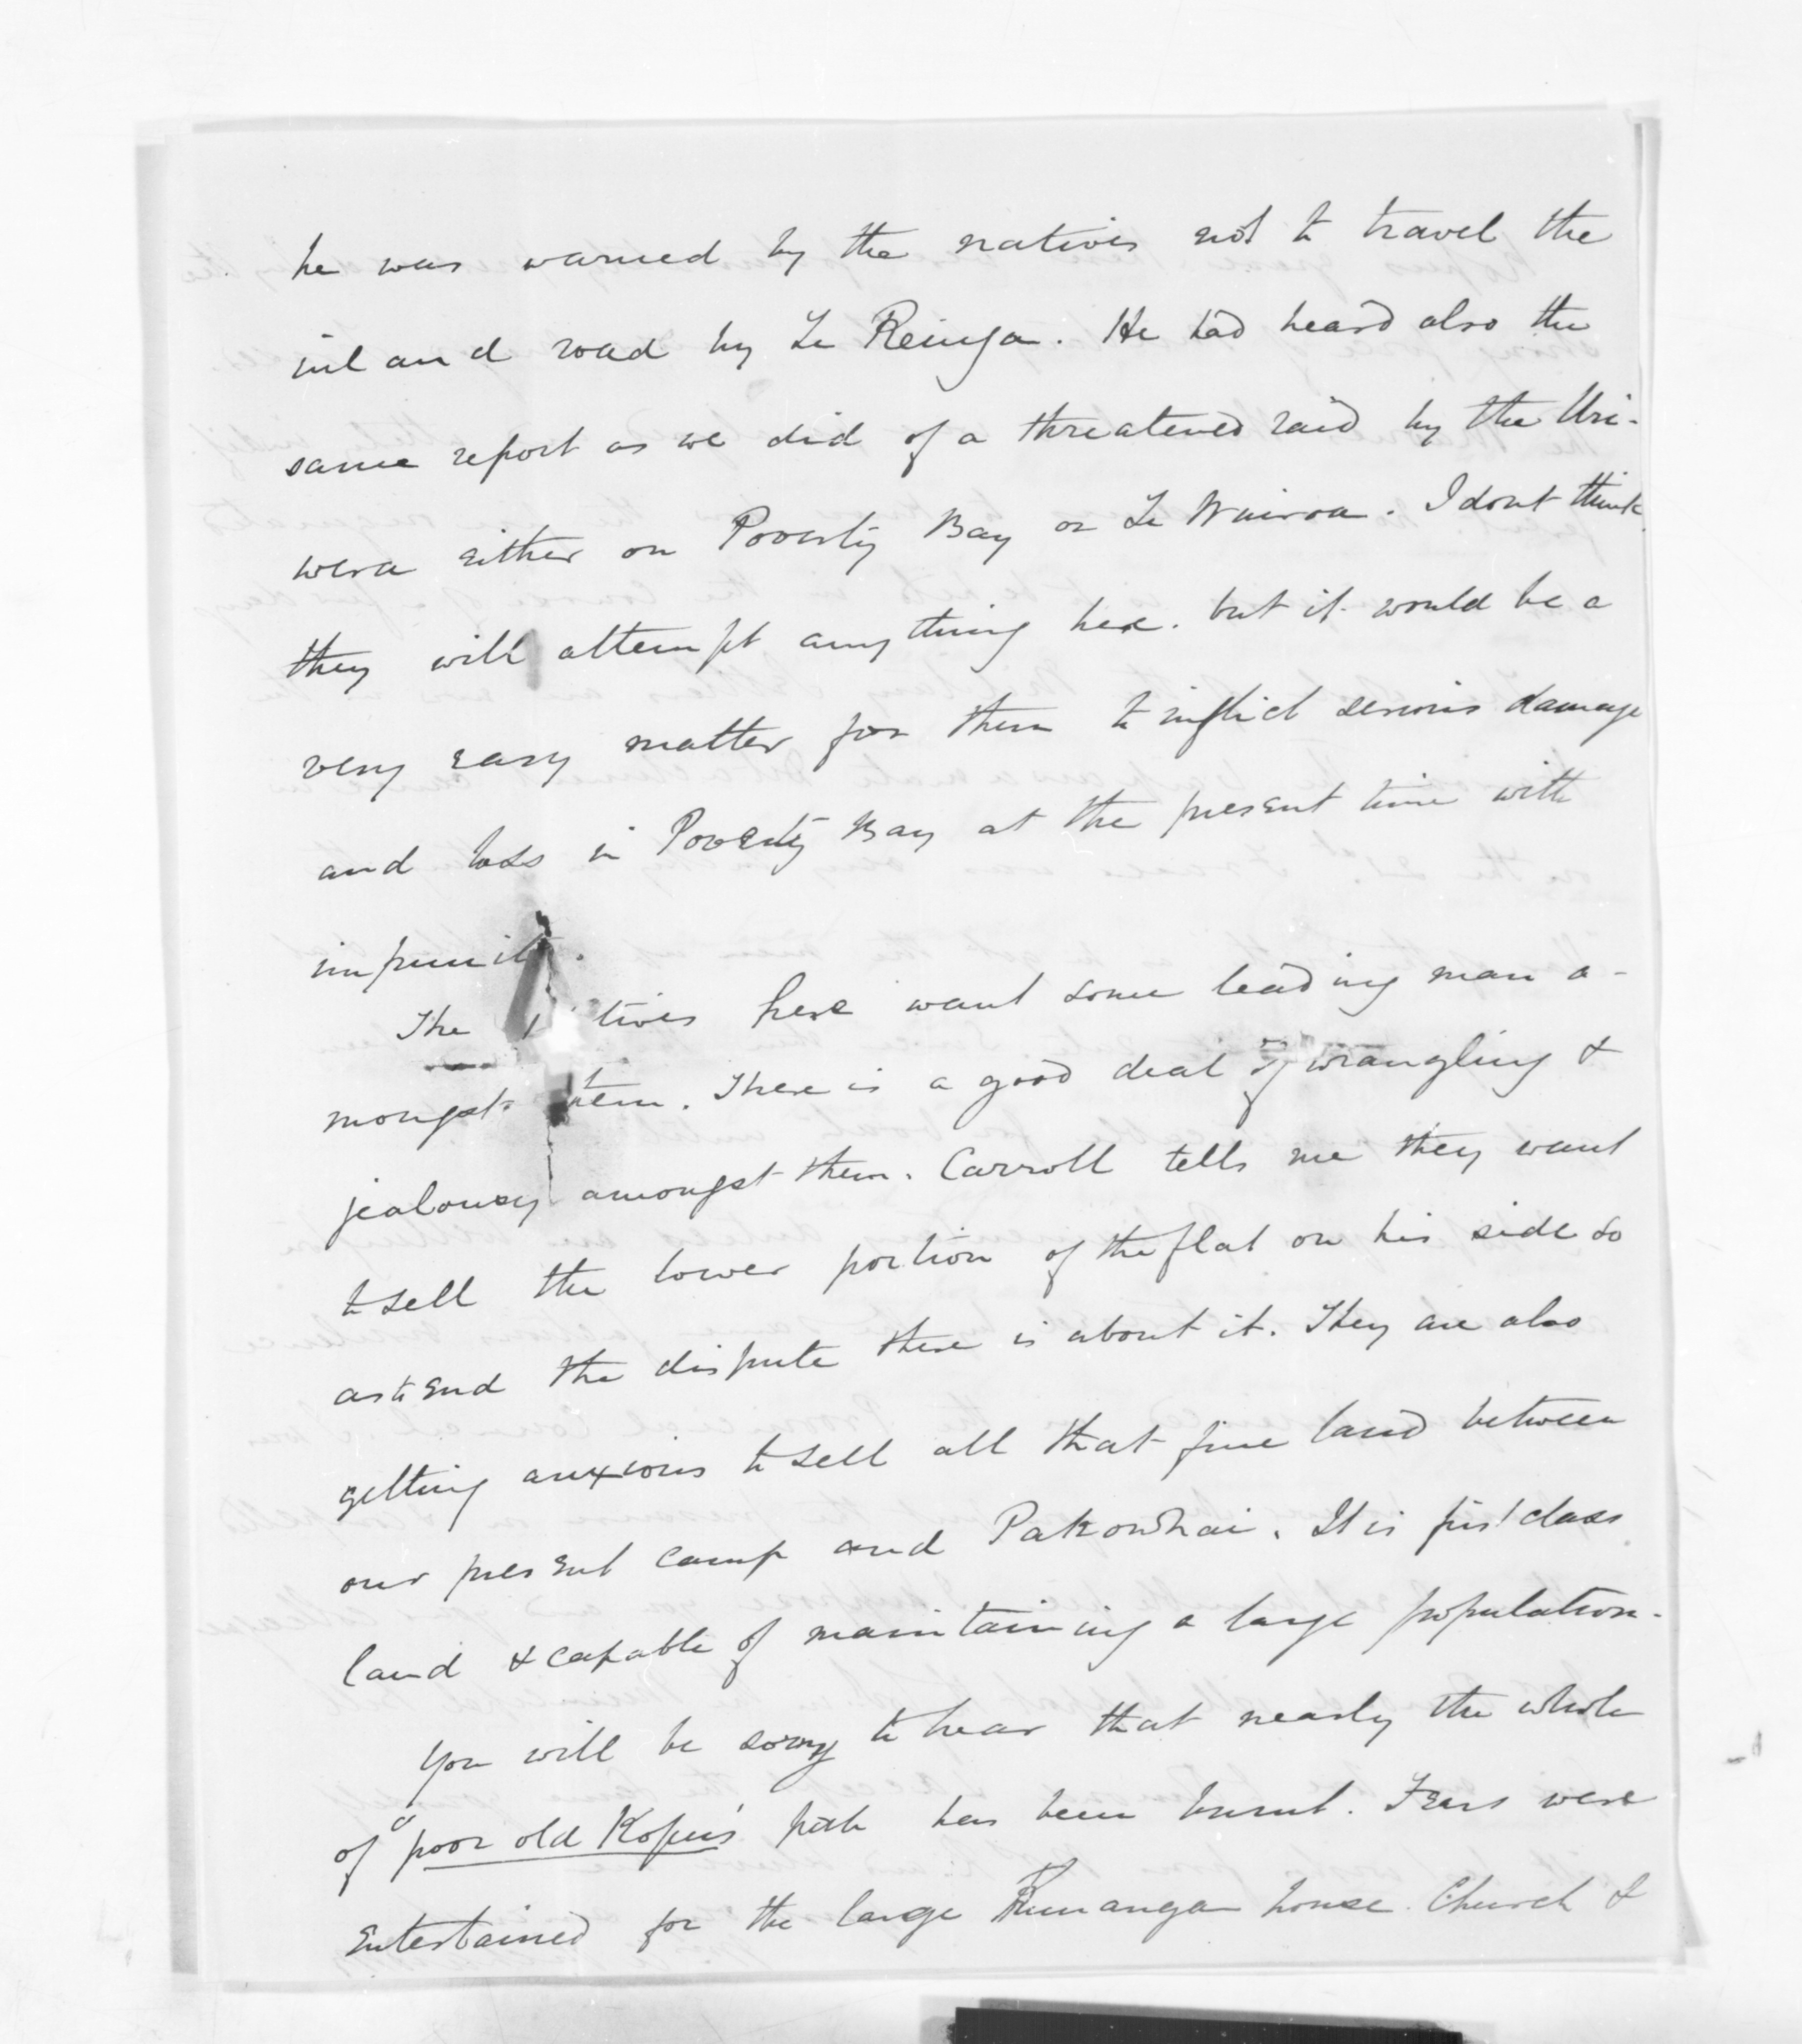 he was warned by the natives not to travel the
inland road by Te Reinga. He had heard also the
same report as we did of a threatened raid by the Uri-
wera either on Poverty Bay or Te Wairoa. I dont think
they will attempt anything here. but it would be a
very easy matter for them to inflict serious damage
and loss in Poverty Bay at the present time with
impunity.
The natives here want some leading man a-
mongst them. There is a good deal of wrangling &
jealousy amongst them. Carroll tells me they want
to sell the lower portion of the flat on his side so
as to end the dispute there is about it. They are also
getting anxious to sell all that fine land between
our present camp and Pakowhai. It is first class
land & capable of maintaining a large population.
You will be sorry to hear that nearly the whole
of "poor old Kopu's" pah has been burnt. Fears were
entertained for the large Runanga house. Church &